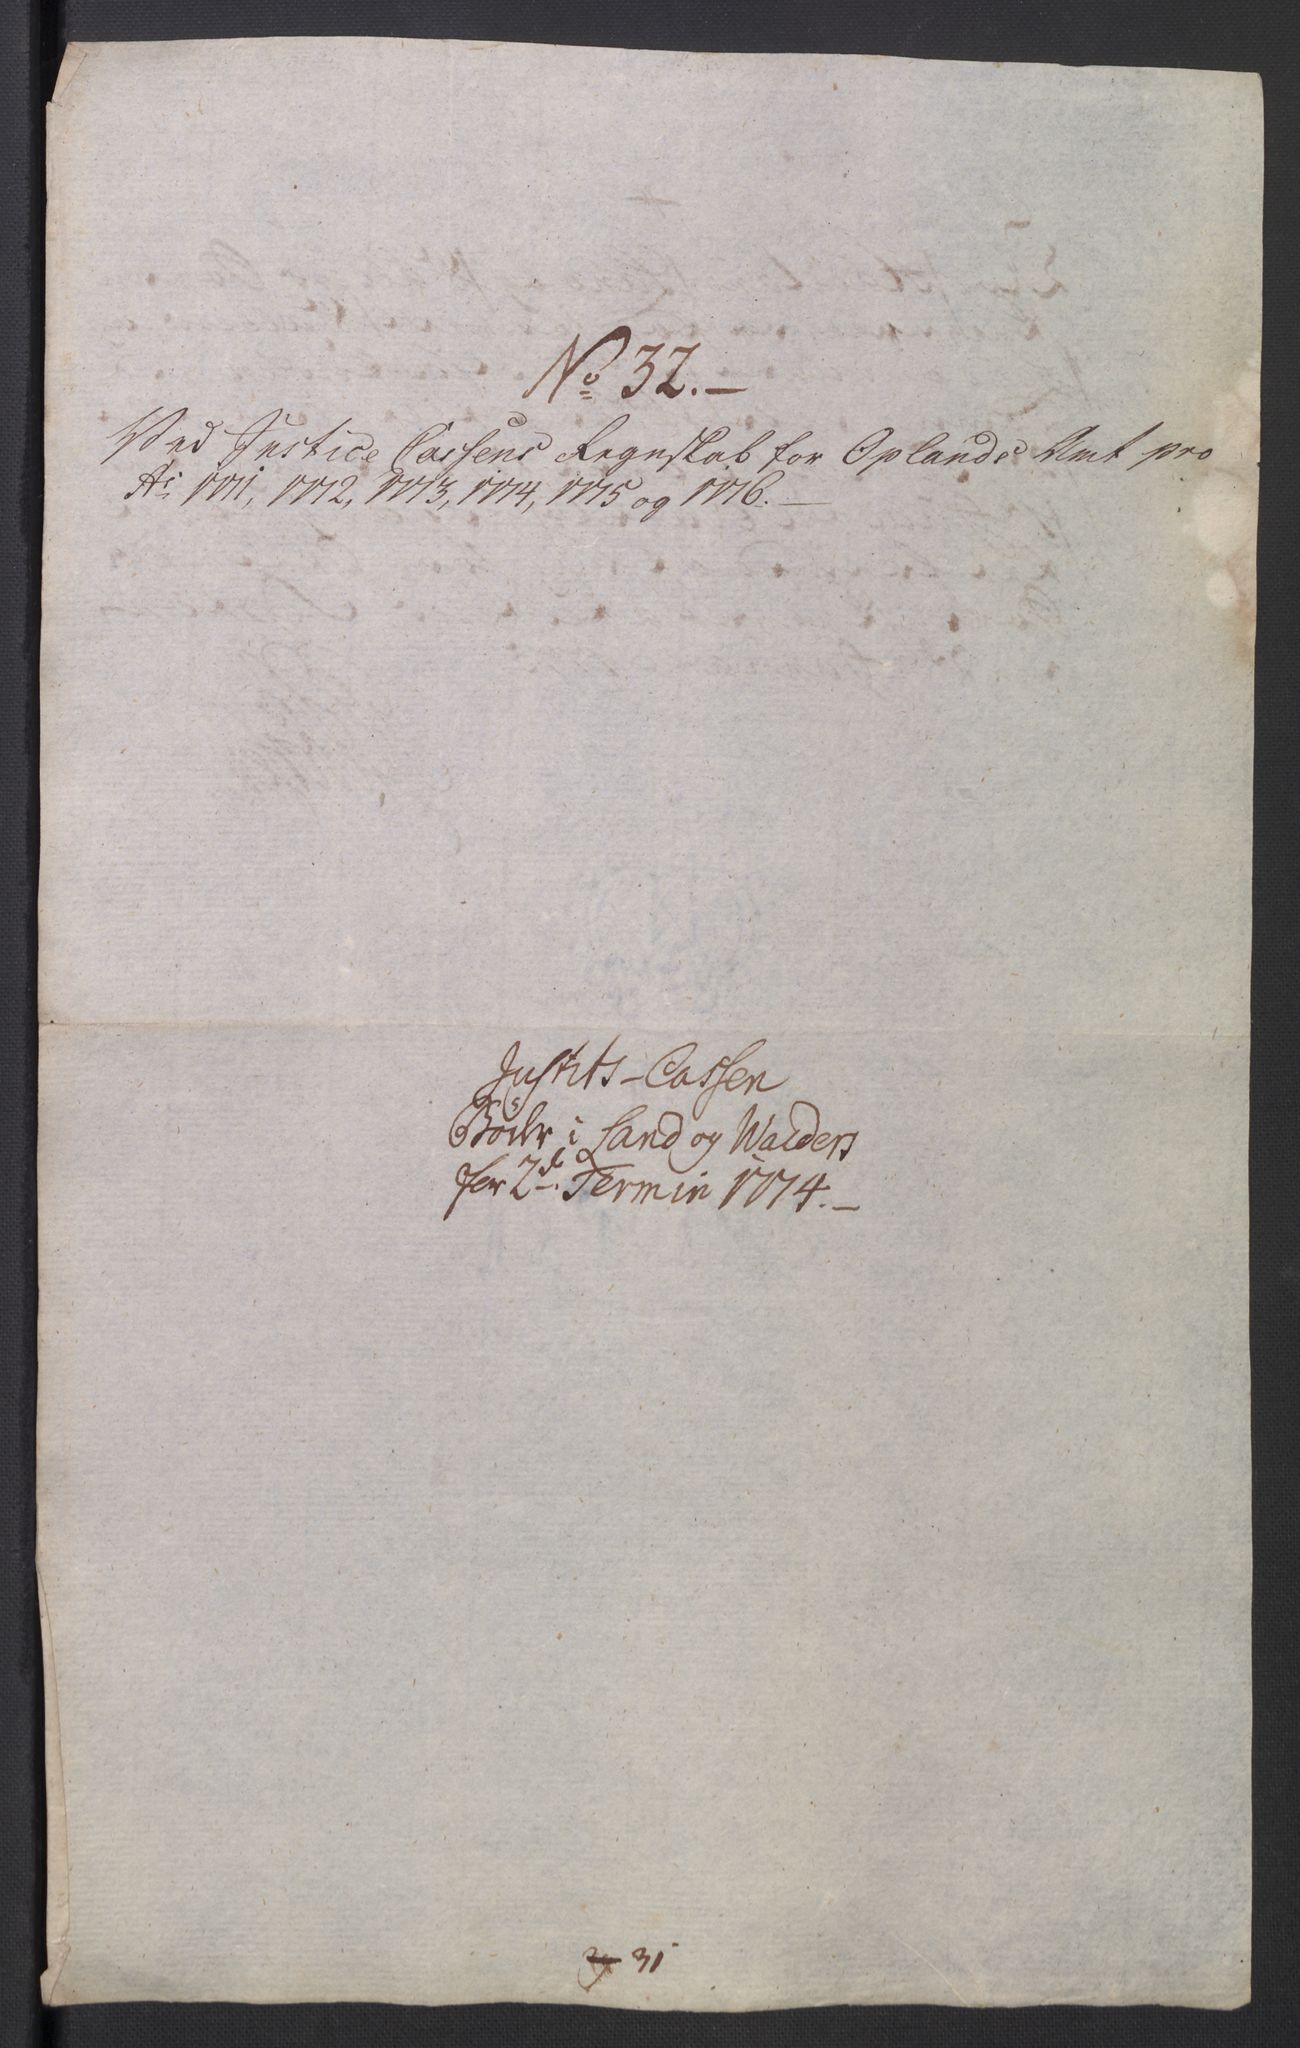 No 32.—
Ved Justice Cassens Regnskab for Oplands Amt pro
Ao 1771, 1772, 1773, 1774, 1775 og 1776.—
Justits-Cassen
Böder i Land og Walders
for 2d. Termin 1774.—
31